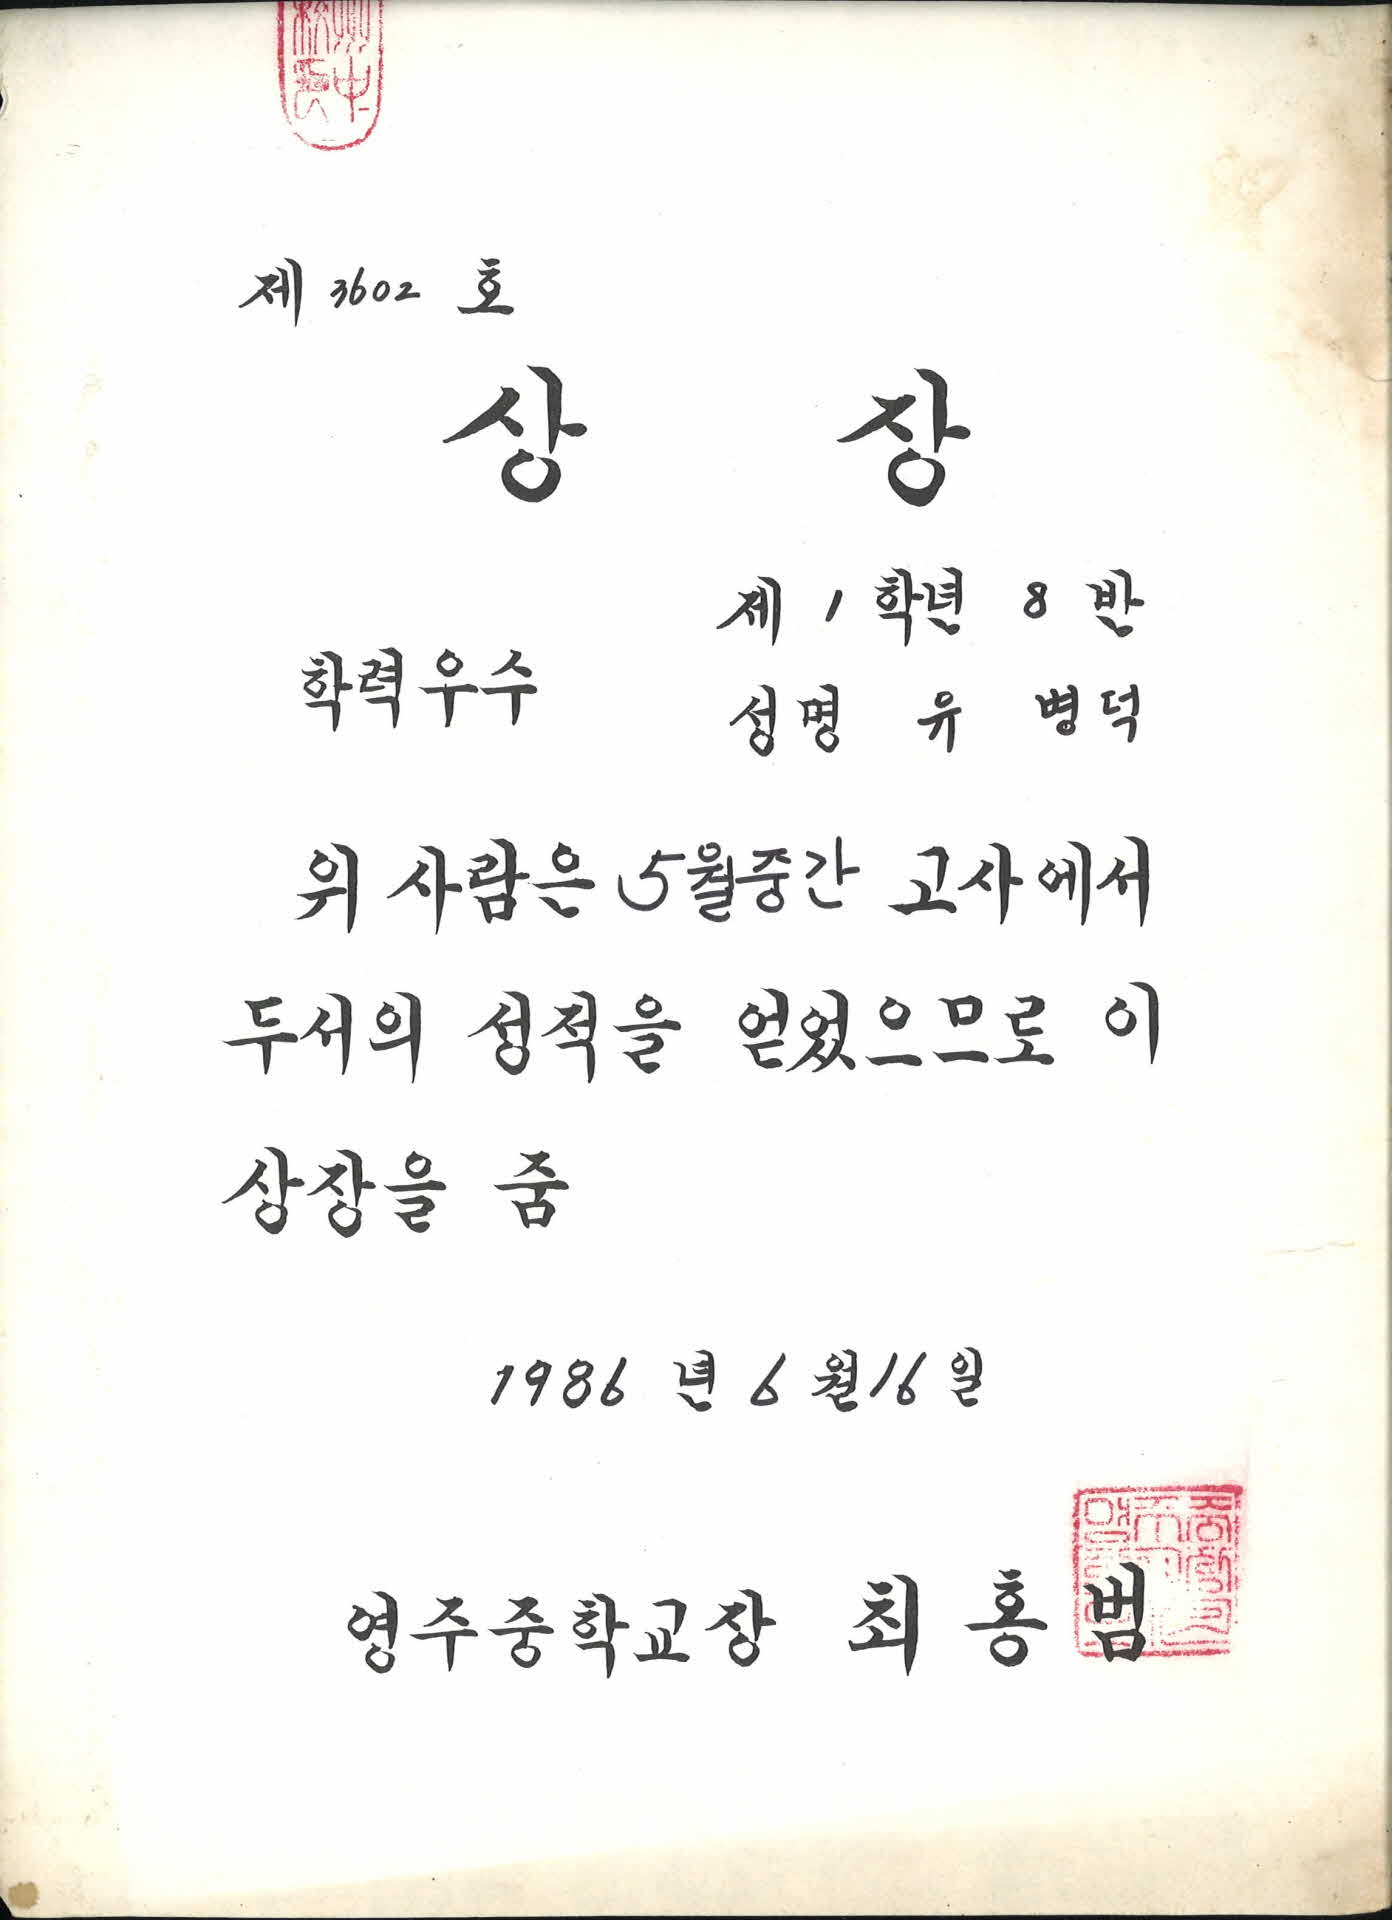 제 3602 호
상 장
제 1 학년 8 반
학력우수
성명 유 병덕
위 사람은 5월중간 고사에서
두서의 성적을 얻었으므로 이
상장을 줌
1986 년 6 월 16 일
영주중학교장 최홍범